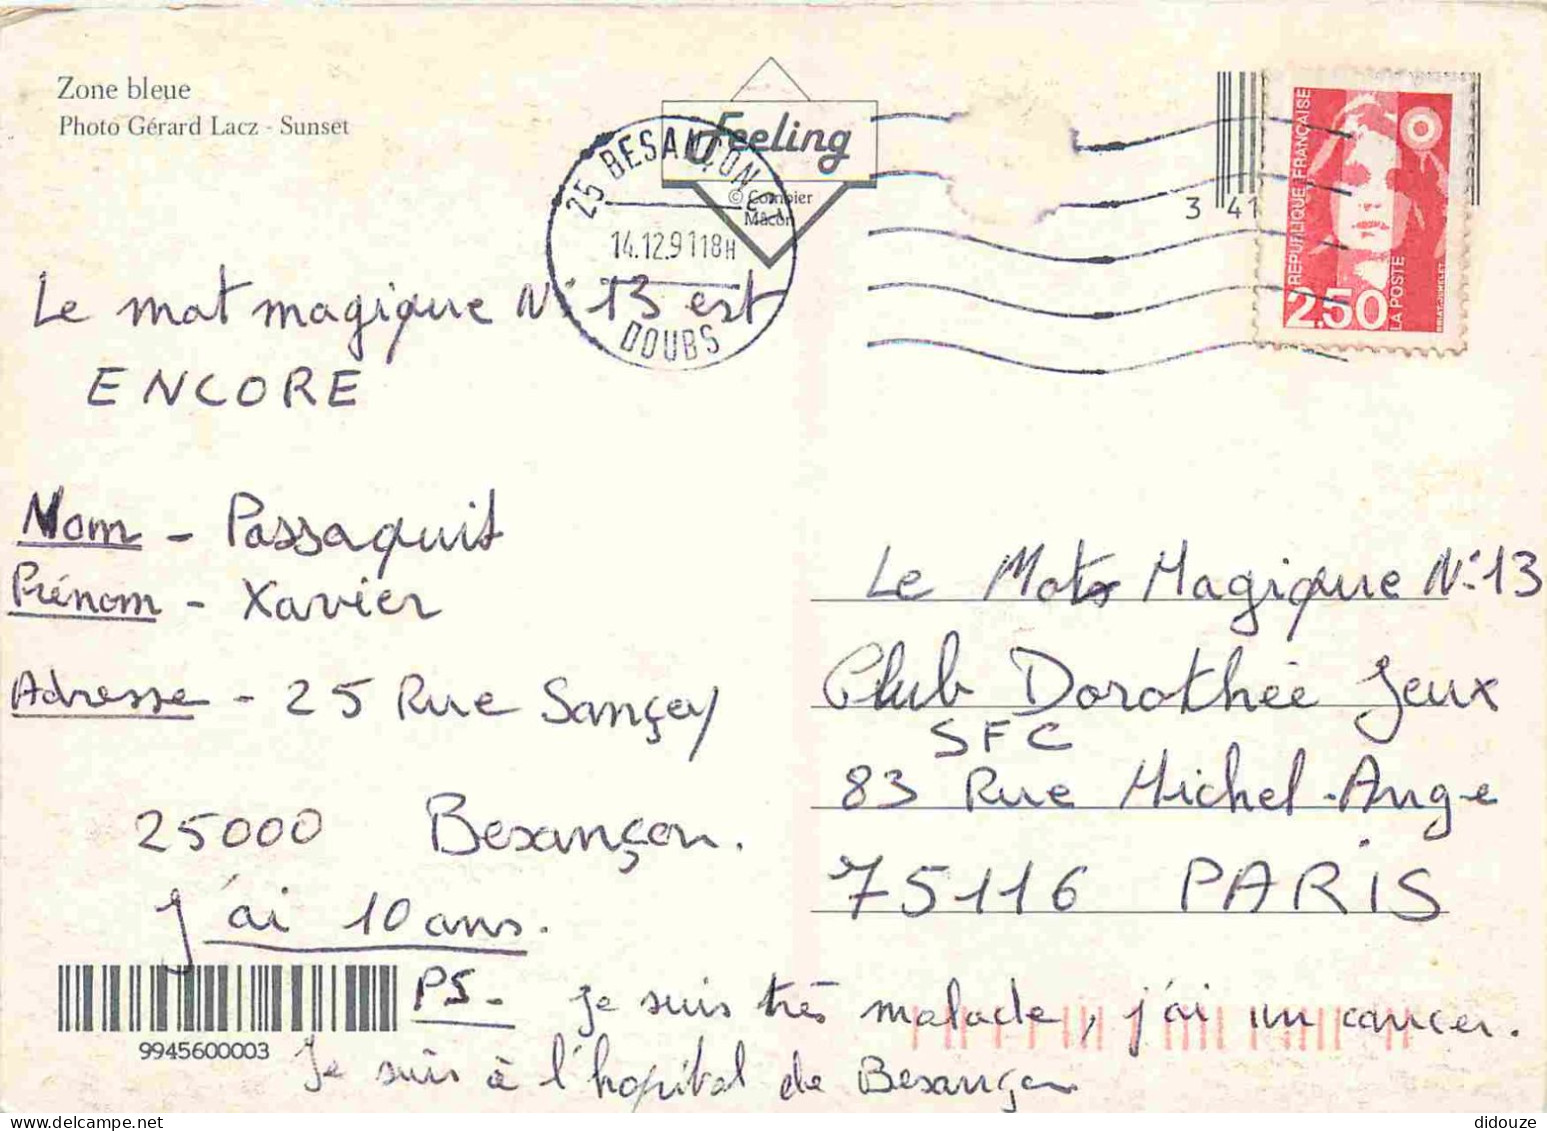 Zone bleue
Photo Gérard Lacz - Sunset
Feeling
© Combier
Mâcon
25 BESANÇON
14.12.91 18H
DOUBS
3 41
REPUBLIQUE FRANÇAISE
2.50
LA POSTE
Le mot magique N° 13 est
ENCORE
Nom - Passaquit
Prénom - Xavier
Adresse - 25 Rue Sançey
25000 Besançon.
J'ai 10 ans.
Le Mot Magique N° 13
Club Dorothée Jeux
SFC
83 Rue Michel-Ange
75116 PARIS
PS - Je suis très malade, j'ai un cancer.
Je suis à l'hopital de Besançon
9945600003
didouze